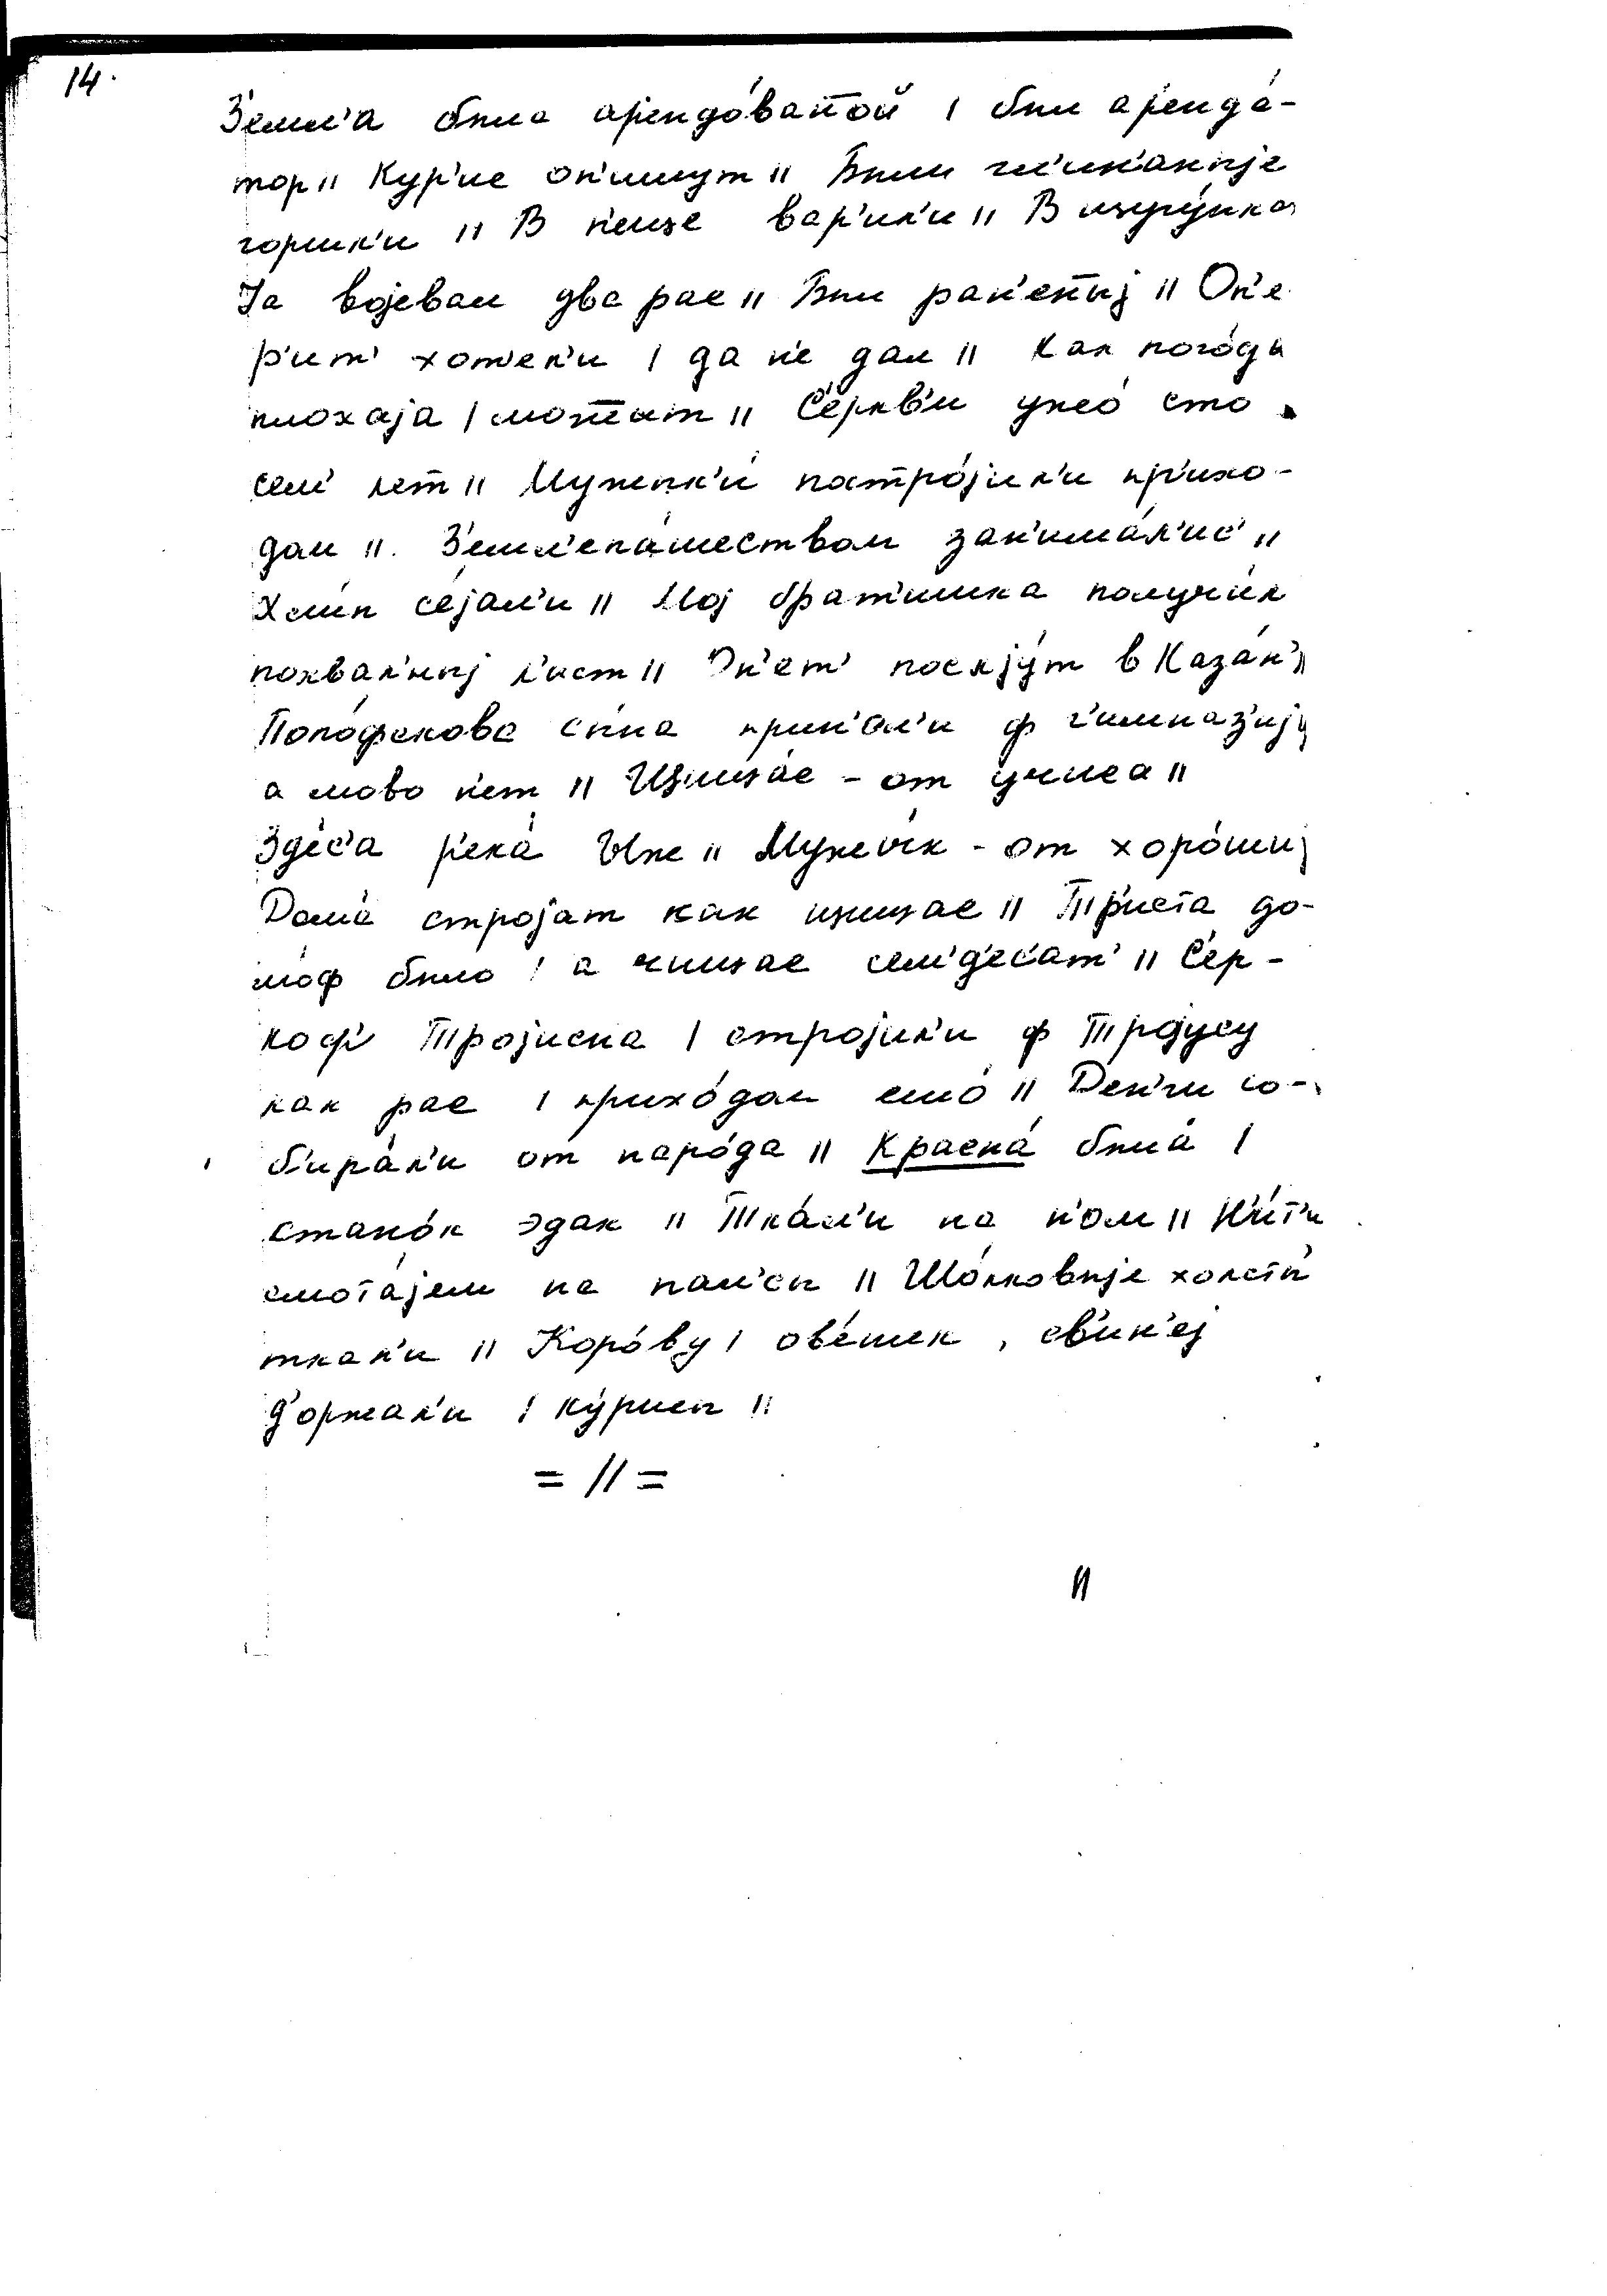 14.
З'емл'а была ар'ендо́ван̄ой | был ар'енда́-
тор || Кур'ис оп'ишут || Были гл'ин'аныjе
горшк'и || В п'ещс вар'ил'и || В
Jа воjевал два рас || Был ран'ен̄ыj || Оп'е
р'ит' хот'ел'и | да н'е дал || Как пого́да
плохаjа | мот̄ат || С'е́ркв'и ужо́ сто
с'ем' лет || Мужык'и́ пастро́jил'и пр'ихо-
дам || З'емл'епа́шеством зан'има́л'ис' ||
Хл'ип с'е́jал'и || Моj брат'ишка получи́л
похвал'ныj л'ист || Оп'ет' посла́jут в Каза́н' ||
сы́на прин'ал'и ф г'имназ'иjу
а мово н'ет || - от училса ||
Зд'ес'а р'ека́ Ыж || Мужык - от хоро́шыj
Дома́ строjат как || Тр'иста до-
мо́ф было | а с'ем'д'ес'ат' || С'ер-
коф' Троjиска | строjил'и ф Троjусу
как рас | прихо́дом ешо́ || Ден'ги со-
б'ира́л'и от наро́да || Красна́ была́ |
стано́к эдак || Тка́л'и на н'ом || Н'и́т'и
смота́jем на пал'сы || Шо́лковыjе холсты́
ткал'и || Коро́ву | ов'е́чек , св'ин'еj
д'оржал'и | ку́рисы ||
= // =